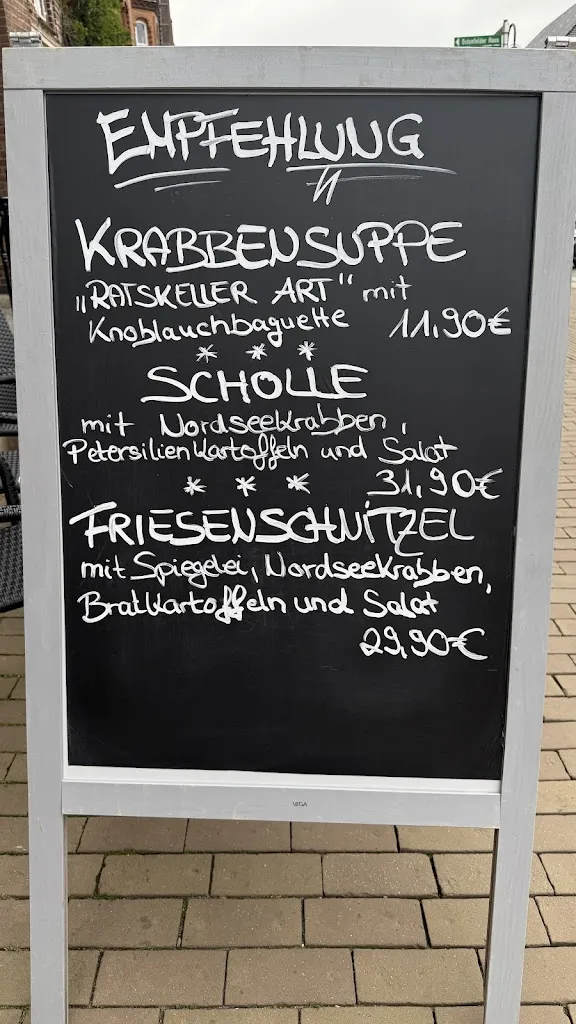 Ostenfelder Haus
EMPFEHLUNG
KRABBENSUPPE
„RATSKELLER ART“ mit
Knoblauchbaguette 11,90€
* * *
SCHOLLE
mit Nordseekrabben,
Petersilienkartoffeln und Salat
31,90€
* * *
FRIESENSCHNITZEL
mit Spiegelei, Nordseekrabben,
Bratkartoffeln und Salat
29,90€
VEGA